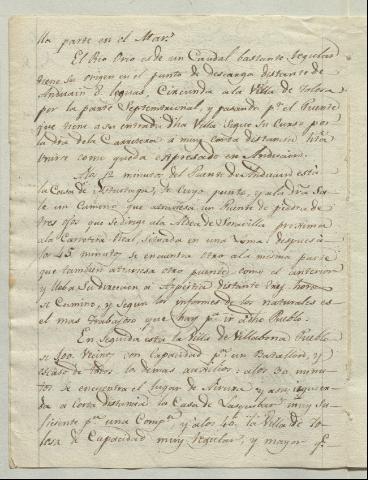 lla parte en el Mar.
El Rio Orio es de un Caudal bastante regular
tiene su origen en el punto de descarga distante de
Anduain 8 leguas, Circunda a la Villa de Tolosa
por la parte Septentrional, y pasando pr. el Puente
que tiene a su entrada dha Villa sigue su Curso por
la dra dela Carretera a muy corta distancia hta
unirse como queda expresado en Anduain.
A los 12 minutos del Puente de Anduain está
la Casa de de cuyo punto, y ala dra Sa-
le un Camino que atraviesa un Puente de piedra de
tres ojos que se dirige ala Aldea de Soravilla proxima
ala Carretera Real, situada en una Loma despues a
los 15 minutos se encuentra otro ala misma parte
que tambien atraviesa otro puente como el anterior
y lleba su direccion a Azpeitia distante hora
de Camino, y segun los informes de los naturales es
el mas trabajoso que hay pa. ir a dho Pueblo.
En seguida esta la Villa de Villabona Pueblo
de 100 vecinos con capacidad pa. un Batallon, y
escaso de todos los demas auxilios: alos 30 minu-
tos se encuentra el lugar de Yrrura y asu izquier-
da a corta distancia la Casa de muy su-
ficiente pa. una Compa. y alos 40 la Villa de To-
losa de Capacidad muy regular, y mayor qe.